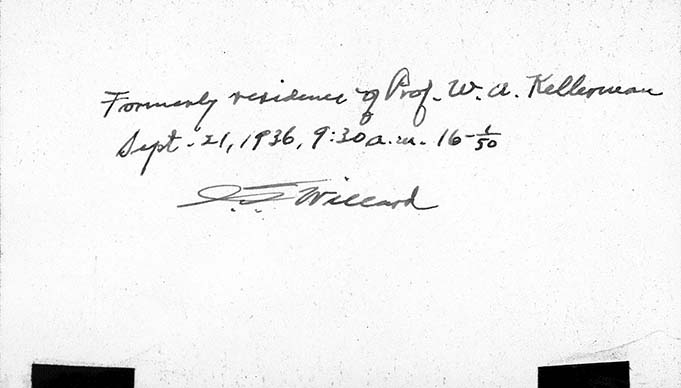 Formerly residence of Prof. W. A. Kellerman
Sept. 21, 1936, 9:30 a.m. 16-1/50
J. T. Willard